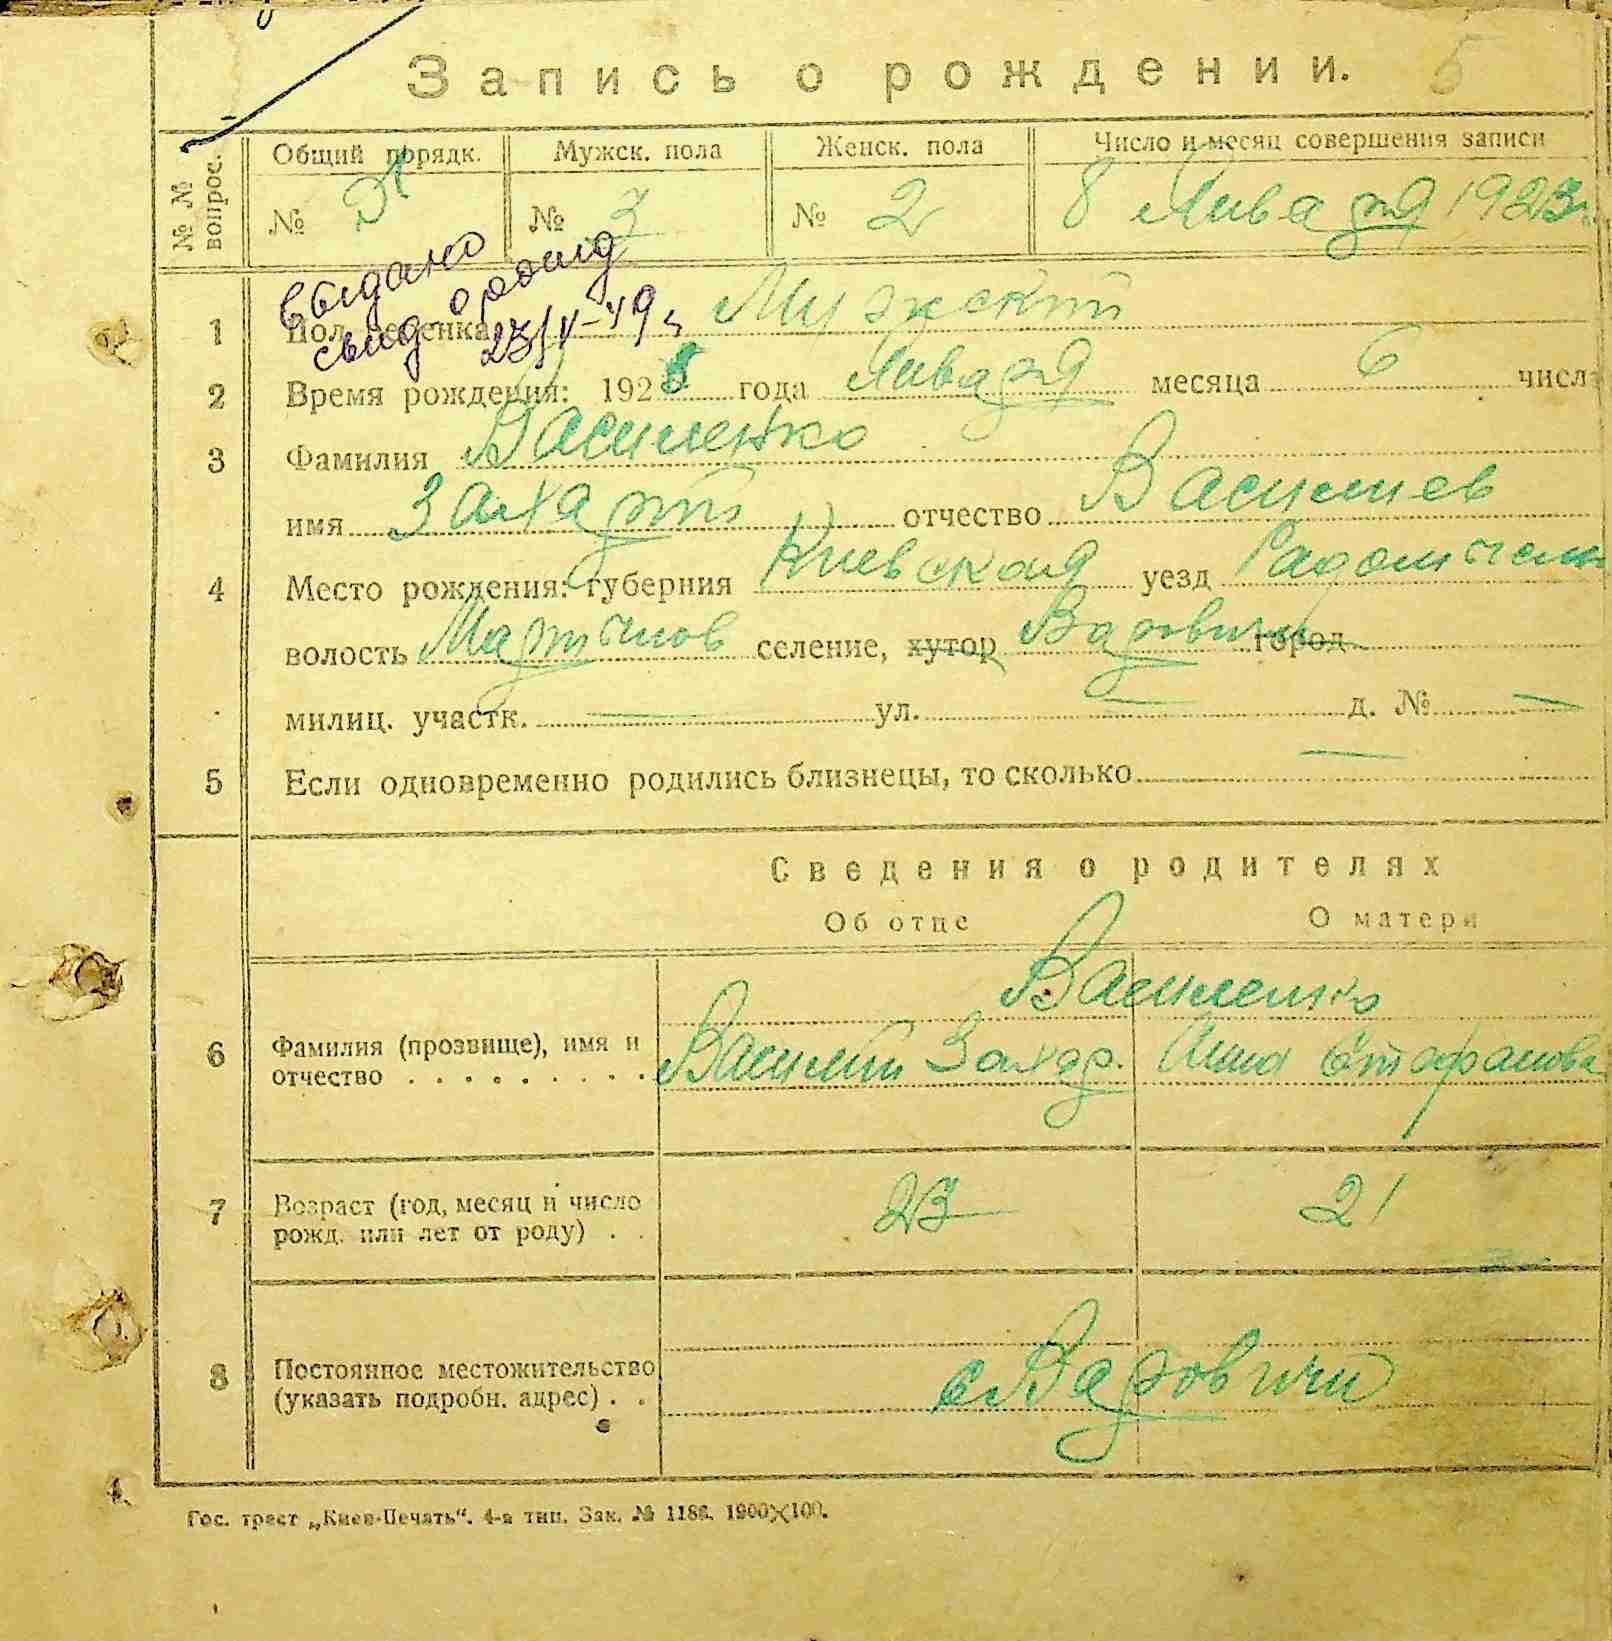 Запись о рождении. 5
№ № вопрос. Общий порядк. Мужск. пола Женск. пола Число и месяц совершения записи
№ № 3 № 2 8 Января 1923 г.
выдано
свид о рожд
23/V-49 г
1 Пол ребенка Мужский
2 Время рождения: 1923 года Января месяца 6 числа
3 Фамилия Василенко
имя Захарий отчество Василиев
4 Место рождения: губерния Киевская уезд Радомысльск
волость Мартынов селение, хутор Варовичи город
милиц. участк. — ул. — д. № —
5 Если одновременно родились близнецы, то сколько —
Сведения о родителях
Об отце О матери
Василенко
6 Фамилия (прозвище), имя и отчество . . . . . . . . . Василий Захар. Анна Стафанова
7 Возраст (год, месяц и число рожд. или лет от роду) . . 23 21
8 Постоянное местожительство (указать подробн. адрес) . . с Варовичи
Гос. трест „Киев-Печать“. 4-я тип. Зак. № 1186. 1900×100.